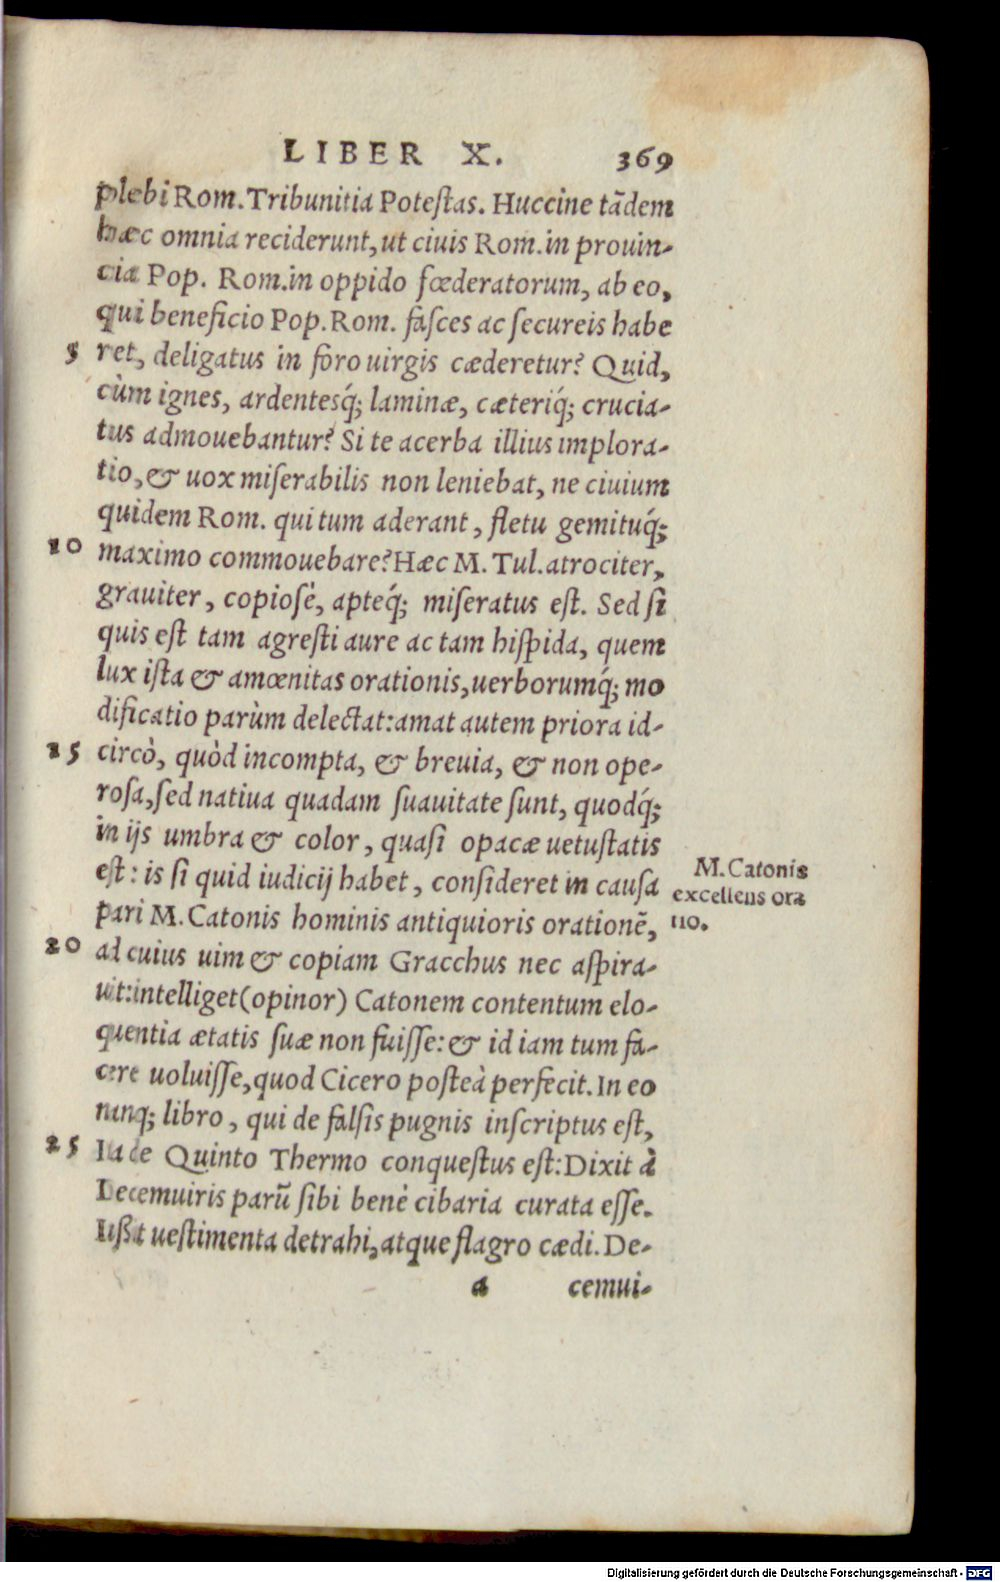 LIBER X. 369
plebi Rom. Tribunitia Potestas. Huccine tãdem
hæc omnia reciderunt, ut ciuis Rom. in prouin-
cia Pop. Rom. in oppido fœderatorum, ab eo,
qui beneficio Pop. Rom. fasces ac secureis habe
5 ret, deligatus in foro uirgis cæderetur? Quid,
cùm ignes, ardentesq́; laminæ, cæteriq́; crucia-
tus admouebantur? Si te acerba illius implora-
tio, & uox miserabilis non leniebat, ne ciuium
quidem Rom. qui tum aderant, fletu gemituq́;
10 maximo commouebare? Hæc M. Tul. atrociter,
grauiter, copiosè, apteq́; miseratus est. Sed si
quis est tam agresti aure ac tam hispida, quem
lux ista & amœnitas orationis, uerborumq́; mo
dificatio parùm delectat: amat autem priora id-
15 circò, quòd incompta, & breuia, & non ope-
rosa, sed natiua quadam suauitate sunt, quodq́;
in ijs umbra & color, quasi opacæ uetustatis
est: is si quid iudicij habet, consideret in causa
pari M. Catonis hominis antiquioris orationẽ,
20 ad cuius uim & copiam Gracchus nec aspira-
uit: intelliget (opinor) Catonem contentum elo-
quentia ætatis suæ non fuisse: & id iam tum fa-
cere uoluisse, quod Cicero posteà perfecit. In eo
nanq; libro, qui de falsis pugnis inscriptus est,
25 Ita de Quinto Thermo conquestus est: Dixit à
Decemuiris parũ sibi benè cibaria curata esse.
Iußit uestimenta detrahi, atque flagro cædi. De-
a cemui-
M. Catonis
excellens ora
tio.
Digitalisierung gefördert durch die Deutsche Forschungsgemeinschaft - DFG